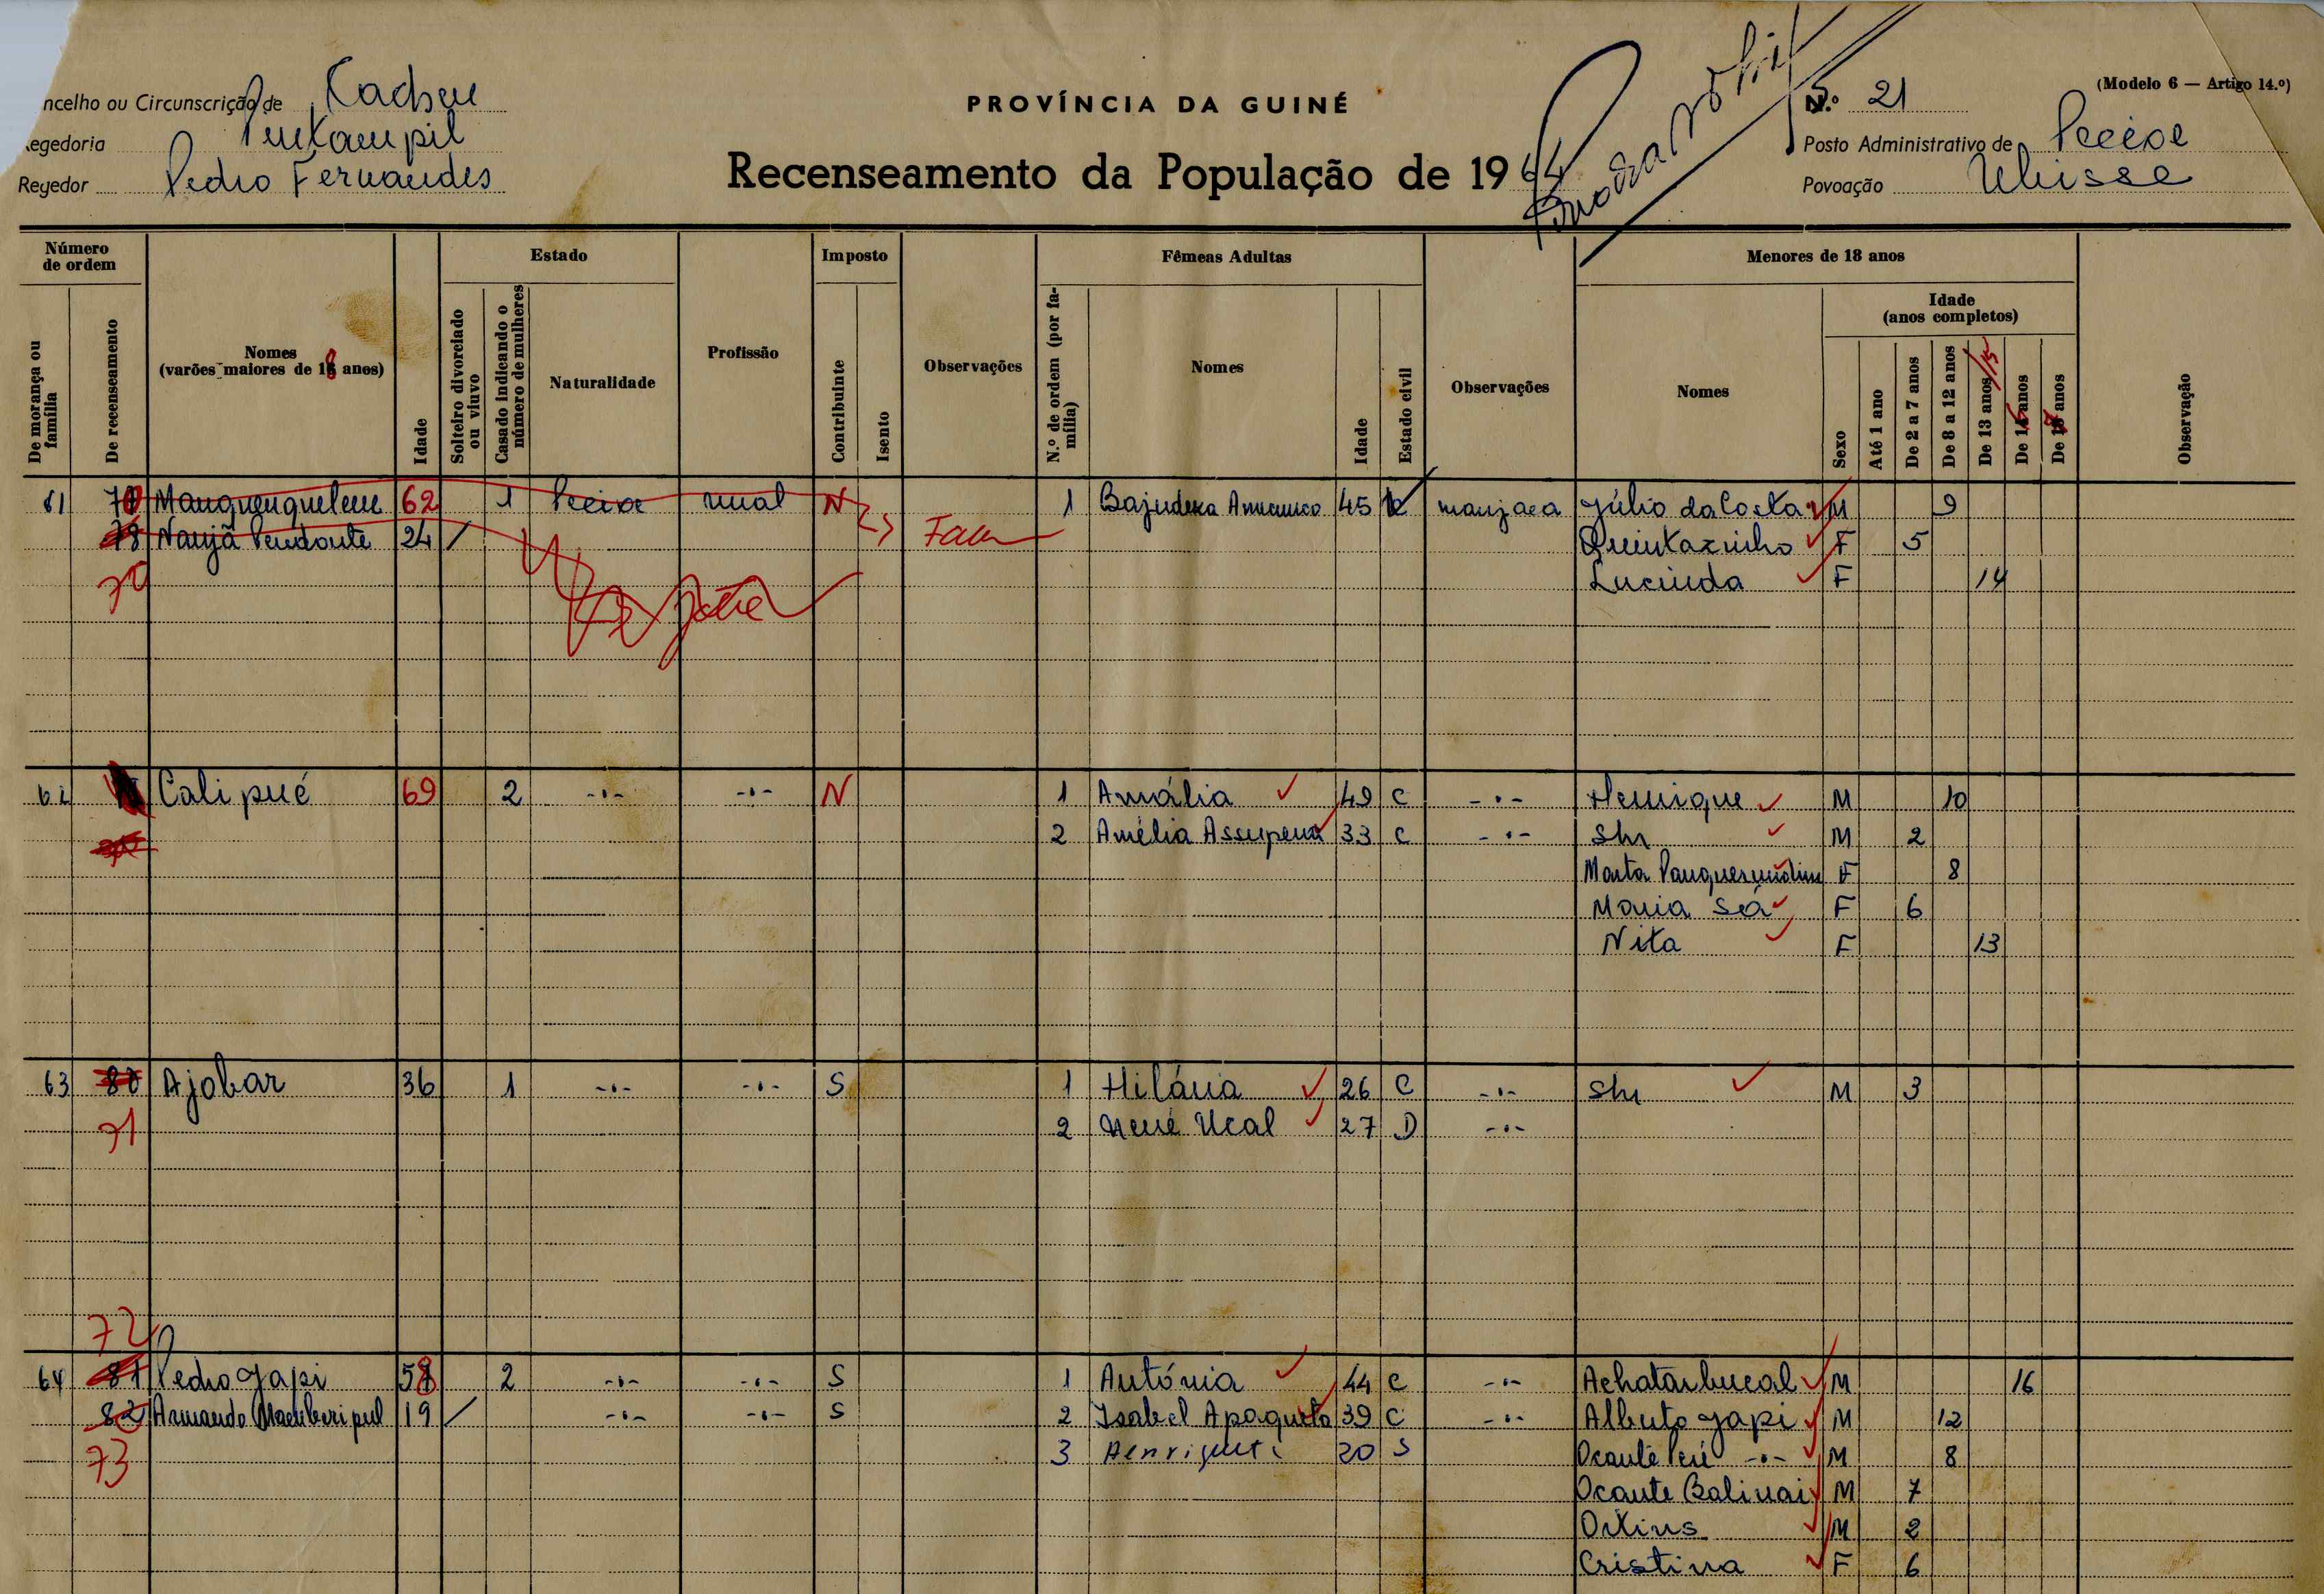 ncelho ou Circunscrição de Kacheu
PROVÍNCIA DA GUINÉ
N.º 21
(Modelo 6 — Artigo 14.º)
egedoria Pintampil
Posto Administrativo de Pecixe
Regedor Pedro Fernandes
Recenseamento da População de 1964
Povoação Uhisse
Número de ordem
De morança ou família
De recenseamento
Nomes (varões maiores de 18 anos)
Idade
Estado
Solteiro divorciado ou viuvo
Casado indicando o número de mulheres
Naturalidade
Profissão
Imposto
Contribuinte
Isento
Observações
Fêmeas Adultas
N.º de ordem (por família)
Nomes
Idade
Estado civil
Observações
Menores de 18 anos
Nomes
Sexo
Idade (anos completos)
Até 1 ano
De 2 a 7 anos
De 8 a 12 anos
De 13 anos /15
De 16 anos
De 17 anos
Observação
61 62 1 Pecixe rural N 1 45 manjaca Júlio da Costa M 9
78 24 / Quintazinho F 5
70 Lucinda F 14
62 Calipué 69 2 -.- -.- N 1 Amália 49 C -.- Henrique M 10
2 Amélia Assupena 33 C -.- Shr M 2
Marta F 8
Maria Sá F 6
Nita F 13
63 80 Ajobar 36 1 -.- -.- S 1 Hilária 26 C -.- Shr M 3
71 2 Nené Ucal 27 D -.-
72
64 81 Pedro Japi 58 2 -.- -.- S 1 Antónia 44 C -.- Achatarbucal M 16
82 Armando 19 / -.- -.- S 2 Isabel Apaqueta 39 C -.- Alberto Japi M 12
73 3 Henriqueta 20 S Ocante Peré -.- M 8
Ocante Balinai M 7
Oxins M 2
Cristina F 6